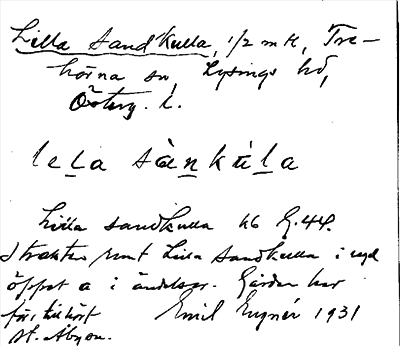 Lilla Sandkulla, 1/2 mtl, Tre-
hörna sn, Lysings hd,
Österg. l.
lela sànkúla
Lilla Sandkulla kb G. 44.
I trakten runt Lilla Sandkulla i syd
öppet a i ändelser. Gården har
förr tillhört Emil Engnér 1931
st. Åbyon.